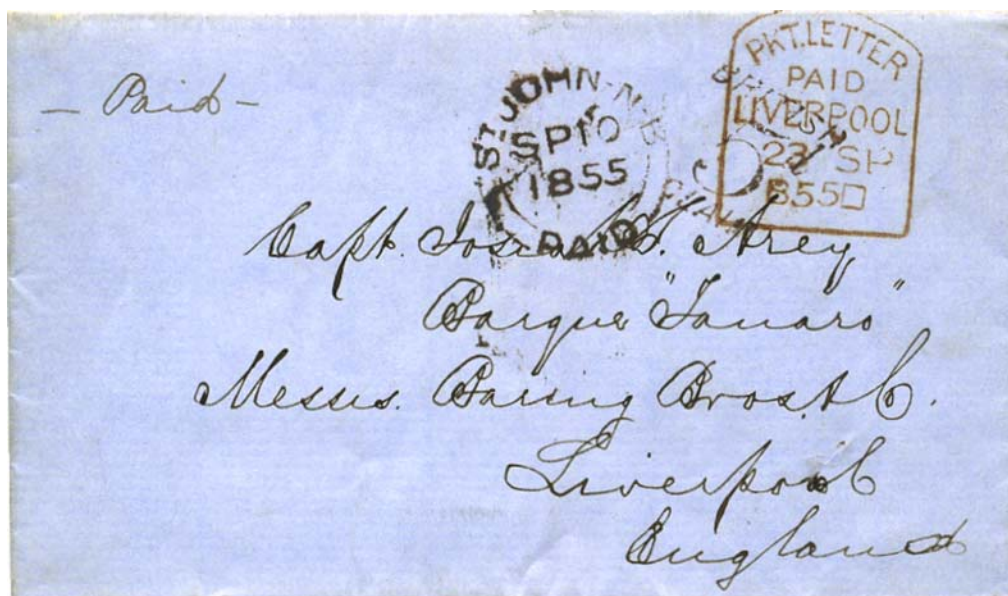 — Paid —
ST. JOHN N.B
SP 10
1855
PAID
PKT. LETTER
PAID
LIVERPOOL
23 SP
855
Capt. Josiah Arey
Barque "Tanaro"
Messrs. Baring Bros. & Co.
Liverpool
England